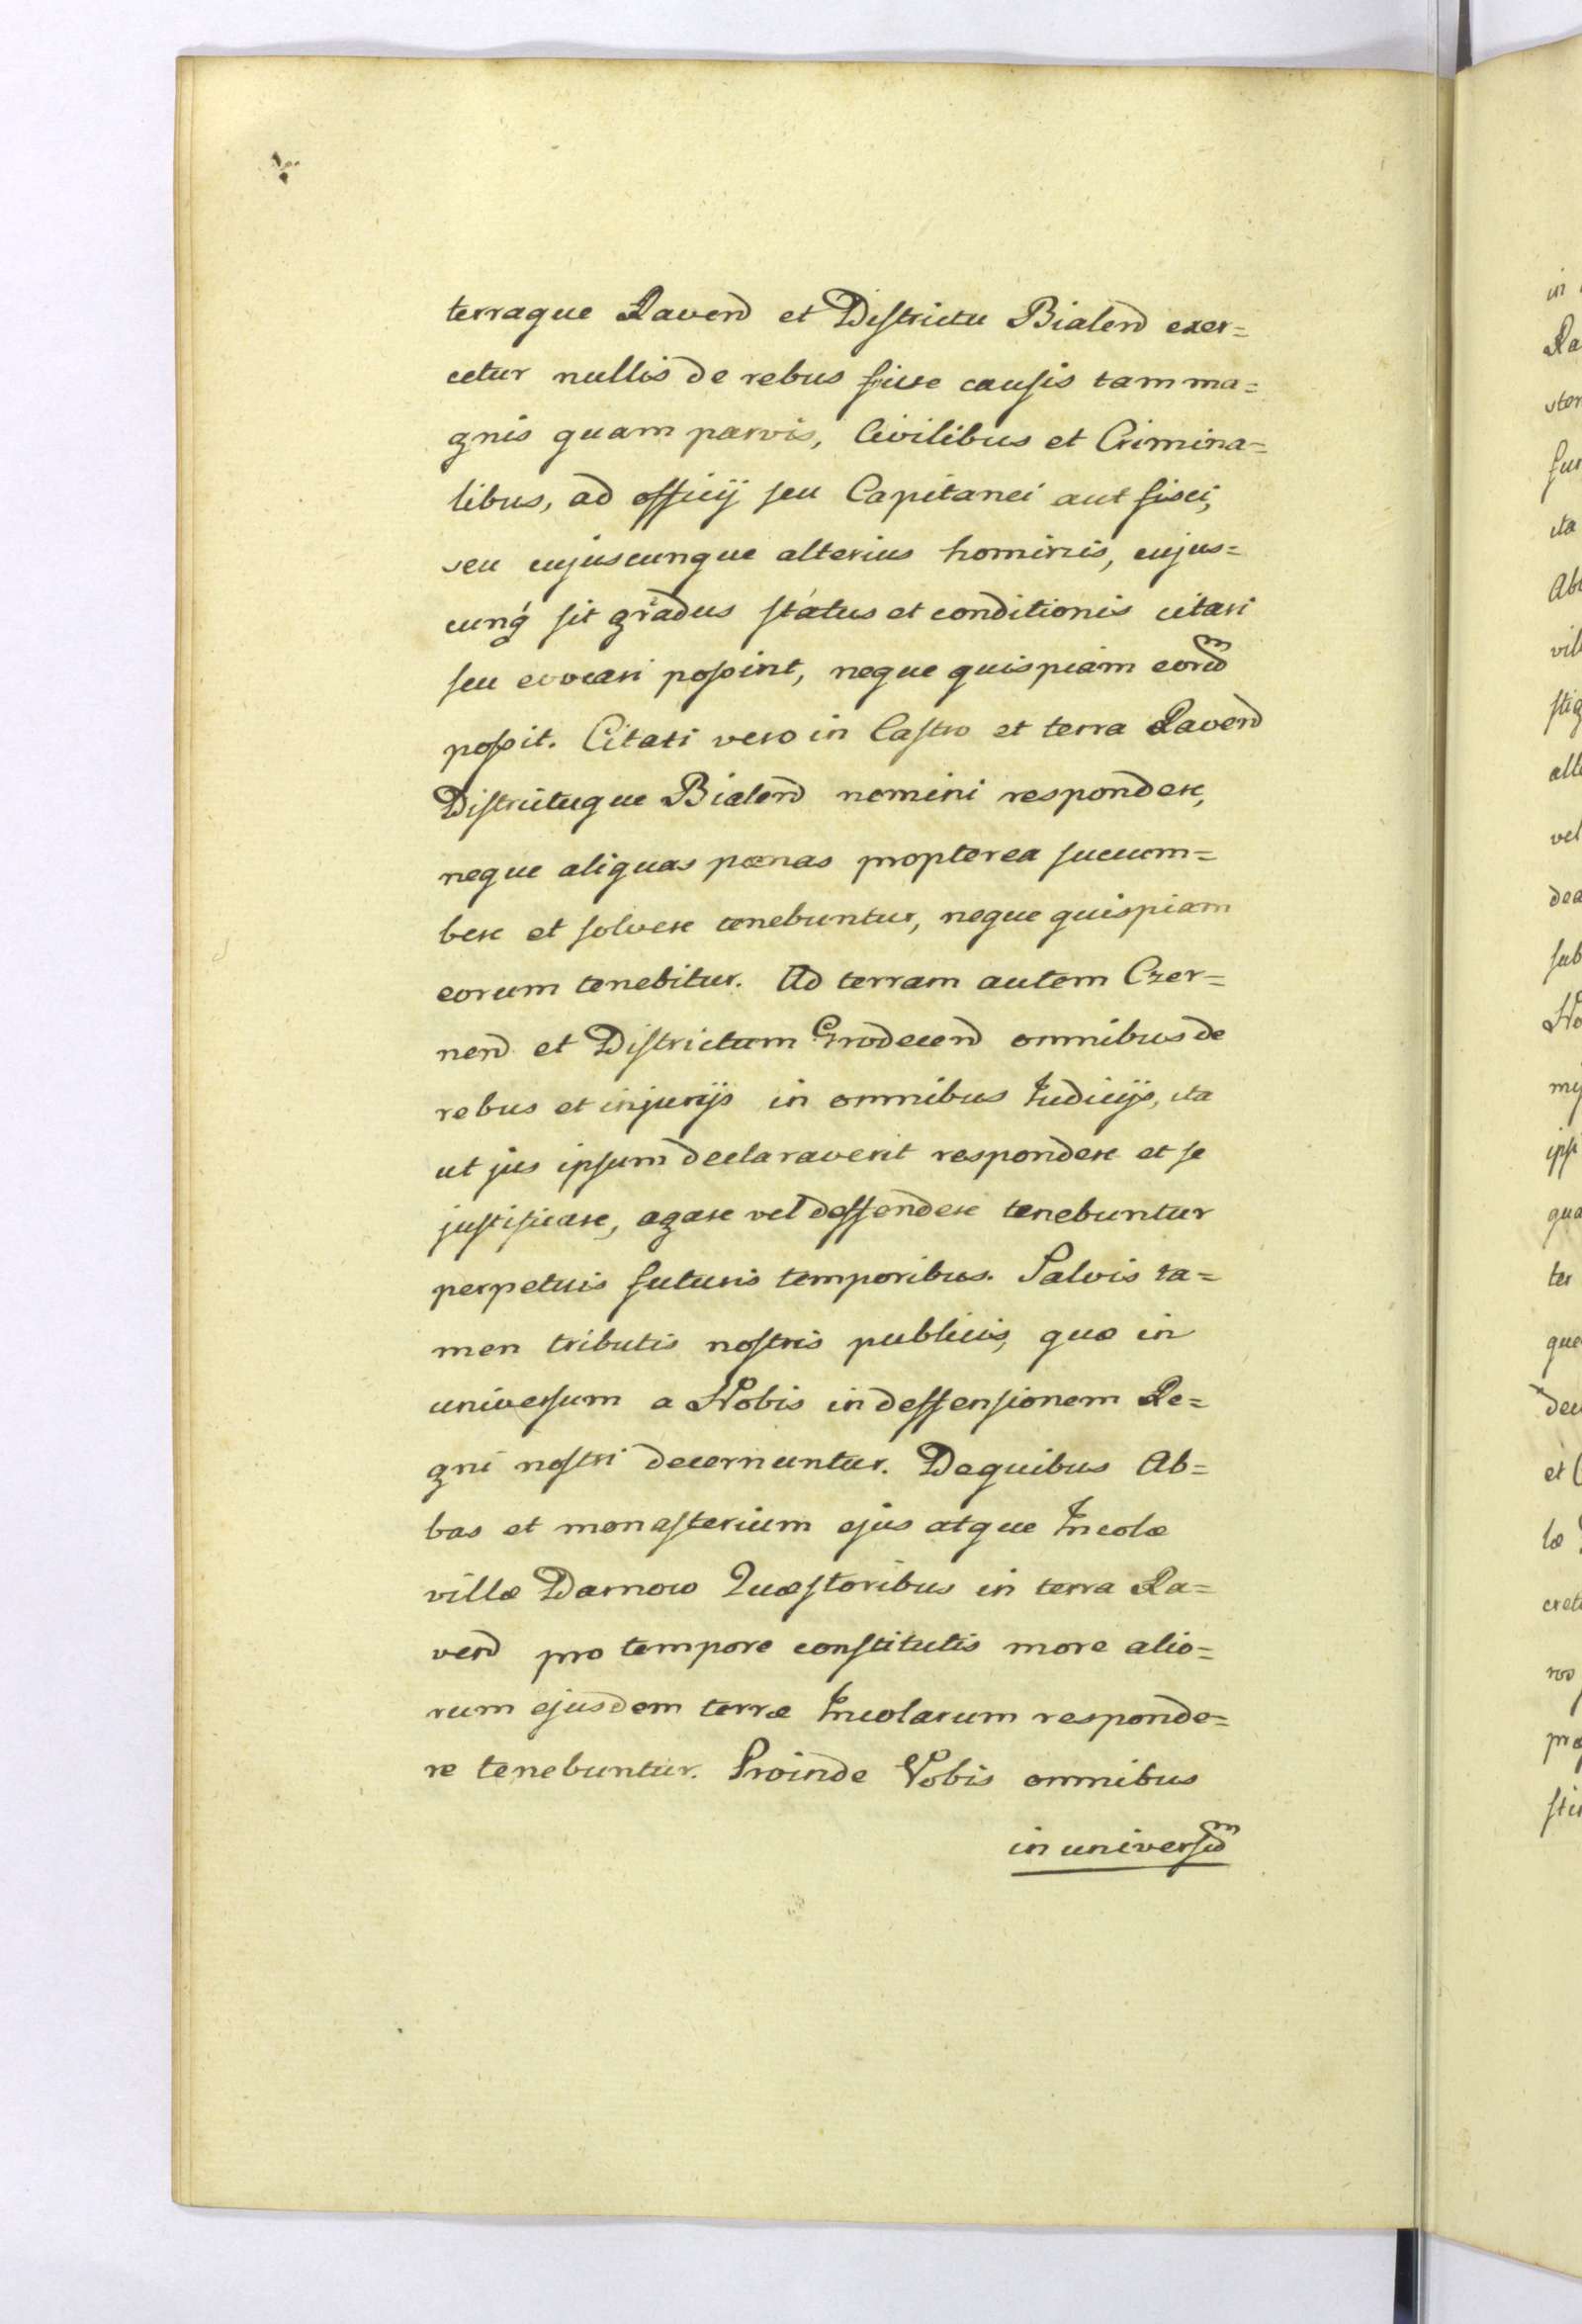 terraque Raven et Districtu Bialen exer=
cetur nullis de rebus sive causis tam ma=
gnis quam parvis, Civilibus et Crimina=
libus, ad officij seu Capitanei aut fisci,
seu cujuscunque alterius hominis, cujus=
cunq́ sit gradus status et conditionis citari
seu evocari possint, neque quispiam eorum
possit. Citati vero in Castro et terra Raven
Districtuque Bialen nemini respondere,
neque aliquas pœnas propterea succum=
bere et solvere tenebuntur, neque quispiam
eorum tenebitur. Ad terram autem Czer=
nen et Districtum Grodecen omnibus de
rebus et injurijs in omnibus Judicijs, ita
ut jus ipsum declaraverit respondere et se
justificare, agare vel deffendere tenebuntur
perpetuis futuris temporibus. Salvis ta=
men tributis nostris publicis, quæ in
universum a Nobis in deffensionem Re=
gni nostri decernuntur. De quibus Ab=
bas et monasterium ejus atque Incolæ
villæ Darnow Quæstoribus in terra Ra=
ven pro tempore constitutis more alio=
rum ejusdem terræ Incolarum responde=
re tenebuntur. Proinde Vobis omnibus
in universum